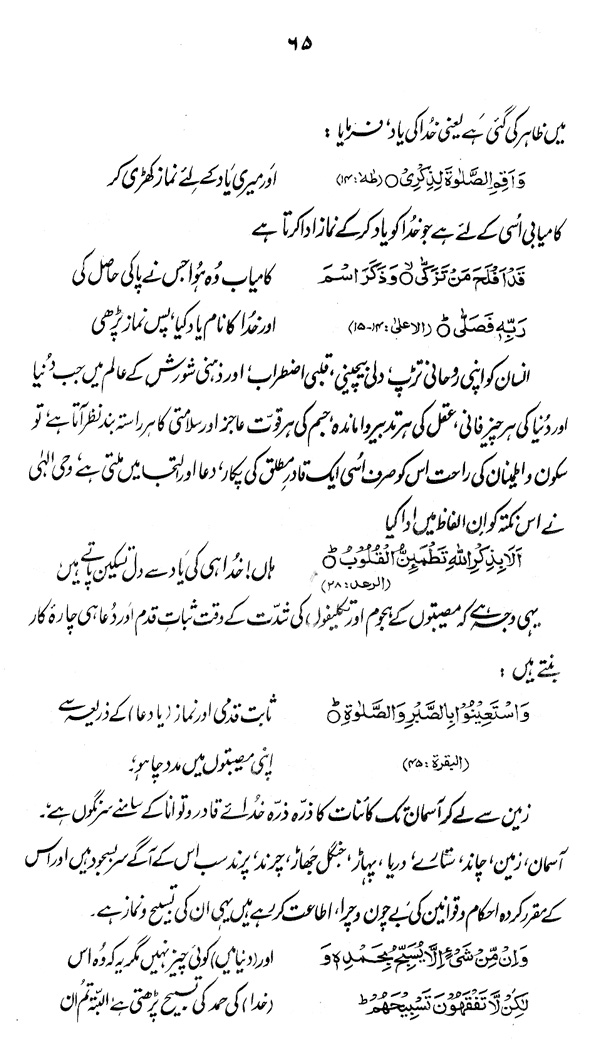 ۶۵
میں ظاہر کی گئی ہے یعنی خدا کی یاد، فرمایا :
وَاَقِمِ الصَّلٰوۃَ لِذِکْرِیْ ○ (طٰہٰ: ۱۴) اور میری یاد کے لئے نماز کھڑی کر
کامیابی اُسی کے لئے ہے جو خدا کو یاد کر کے نماز ادا کرتا ہے
قَدْ اَفْلَحَ مَنْ تَزَکّٰیۙ○ وَذَکَرَ اسْمَ کامیاب وُہ ہوا جس نے پاکی حاصل کی
رَبِّہٖ فَصَلّٰیؕ○ (الاعلیٰ: ۱۴-۱۵) اور خُدا کا نام یاد کیا، پس نماز پڑھی
انسان کو اپنی روحانی تڑپ، دلی بیچینی، قلبی اضطراب، اور ذہنی شورش کے عالم میں جب دُنیا
اور دُنیا کی ہر چیز فانی، عقل کی ہر تدبیر واماندہ، جسم کی ہر قوت عاجز اور سلامتی کا ہر راستہ بند نظر آتا ہے، تو
سکون و اطمینان کی راحت اس کو صرف اُسی ایک قادرِ مطلق کی پکار، دعا اور التجا میں ملتی ہے، وحی الٰہی
نے اس نکتہ کو ان الفاظ میں ادا کیا
اَلَا بِذِکْرِ اللہِ تَطْمَئِنُّ الْقُلُوْبُؕ○ ہاں! خُدا ہی کی یاد سے دل تسکین پاتے ہیں
(الرعد: ۲۸)
یہی وجہ ہے کہ مصیبتوں کے ہجوم اور تکلیفوں کی شدّت کے وقت ثباتِ قدم اور دُعا ہی چارۂ کار
بنتے ہیں :
وَاسْتَعِیْنُوْا بِالصَّبْرِ وَالصَّلٰوۃِؕ○ ثابت قدمی اور نماز (یا دعا) کے ذریعہ سے
(البقرۃ: ۴۵) اپنی مصیبتوں میں مدد چاہو،
زمین سے لے کر آسمان تک کائنات کا ذرّہ ذرّہ خُدائے قادر و توانا کے سامنے سرنگوں ہے،
آسمان، زمین، چاند، ستارے، دریا، پہاڑ، جنگل جھاڑ، چرند، پرند سب اس کے آگے سر بسجود ہیں اور اس
کے مقرر کردہ احکام و قوانین کی بے چون و چرا، اطاعت کر رہے ہیں یہی ان کی تسبیح و نماز ہے۔
وَاِنْ مِّنْ شَیْءٍ اِلَّا یُسَبِّحُ بِحَمْدِہٖ وَ اور (دنیا میں) کوئی چیز نہیں مگر یہ کہ وُہ اس
لٰکِنْ لَّا تَفْقَھُوْنَ تَسْبِیْحَھُمْؕ (خدا) کی حمد کی تسبیح پڑھتی ہے، البتّہ تم اُن